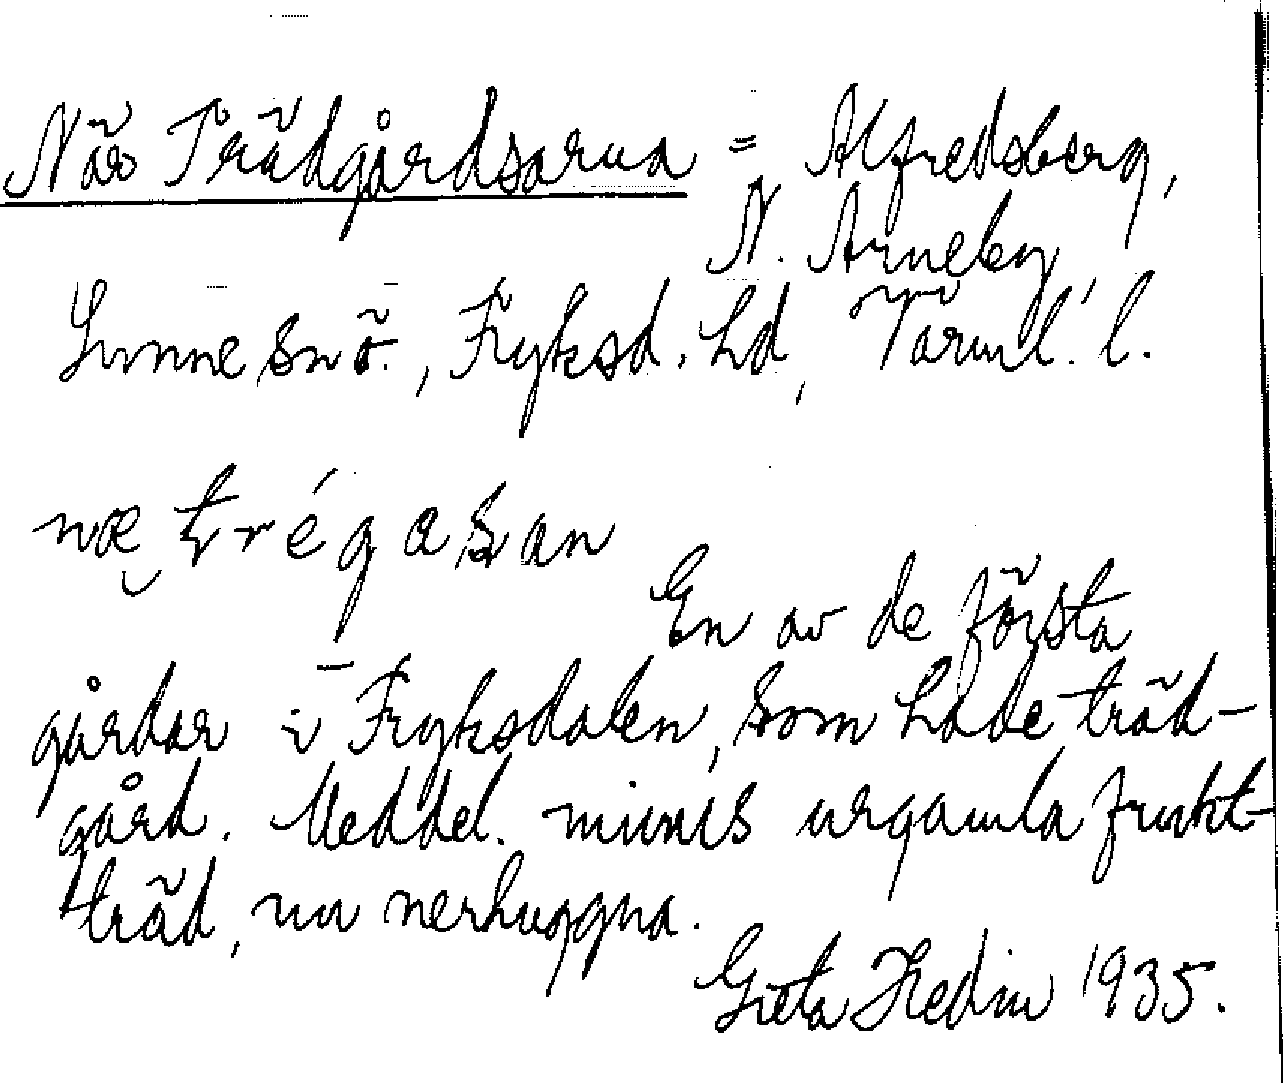 När Trädgårdsarna = Alfredsberg,
N. Arneby,
Sunne snö., Fryksd. hd, Värml. l.
næ trégasan
En av de första
gårdar i Fryksdalen, som hade träd-
gård. Meddel. minns urgamla frukt-
träd, nu nerhuggna.
Greta Hedin 1935.